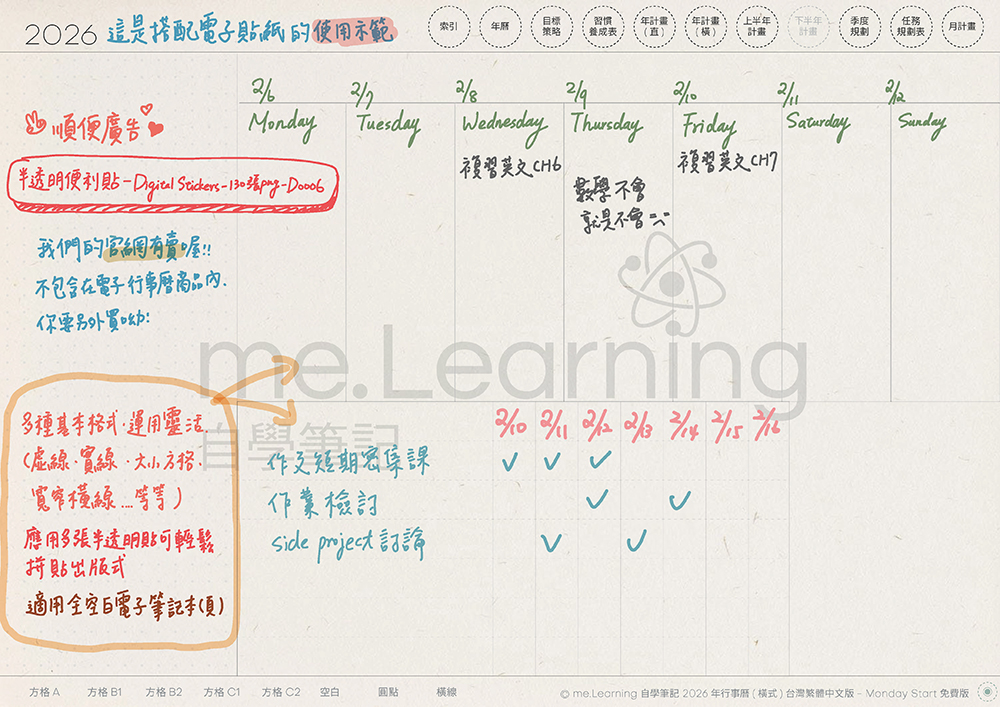 2026 這是搭配電子貼紙的使用示範
索引 年曆 目標策略 習慣養成表 年計畫(直) 年計畫(橫) 上半年計畫 下半年計畫 季度規劃 任務規劃表 月計畫
2/6 2/7 2/8 2/9 2/10 2/11 2/12
Monday Tuesday Wednesday Thursday Friday Saturday Sunday
複習英文CH6
複習英文CH7
數學不會
就是不會
順便廣告
半透明便利貼-Digital Stickers-130張png-D0006
我們的官網有賣喔!!
不包含在電子行事曆商品內.
你要另外買呦!
me.Learning
自學筆記
多種基本格式.運用靈活.
(虛線.實線.大小方格.
寬窄橫線....等等)
應用多張半透明貼可輕鬆
拼貼出版式
適用全空白電子筆記本(頁)
2/10 2/11 2/12 2/13 2/14 2/15 2/16
作文短期密集課
作業檢討
side project 討論
方格 A 方格 B1 方格 B2 方格 C1 方格 C2 空白 圓點 橫線
© me.Learning 自學筆記 2026 年行事曆 ( 橫式 ) 台灣繁體中文版 - Monday Start 免費版